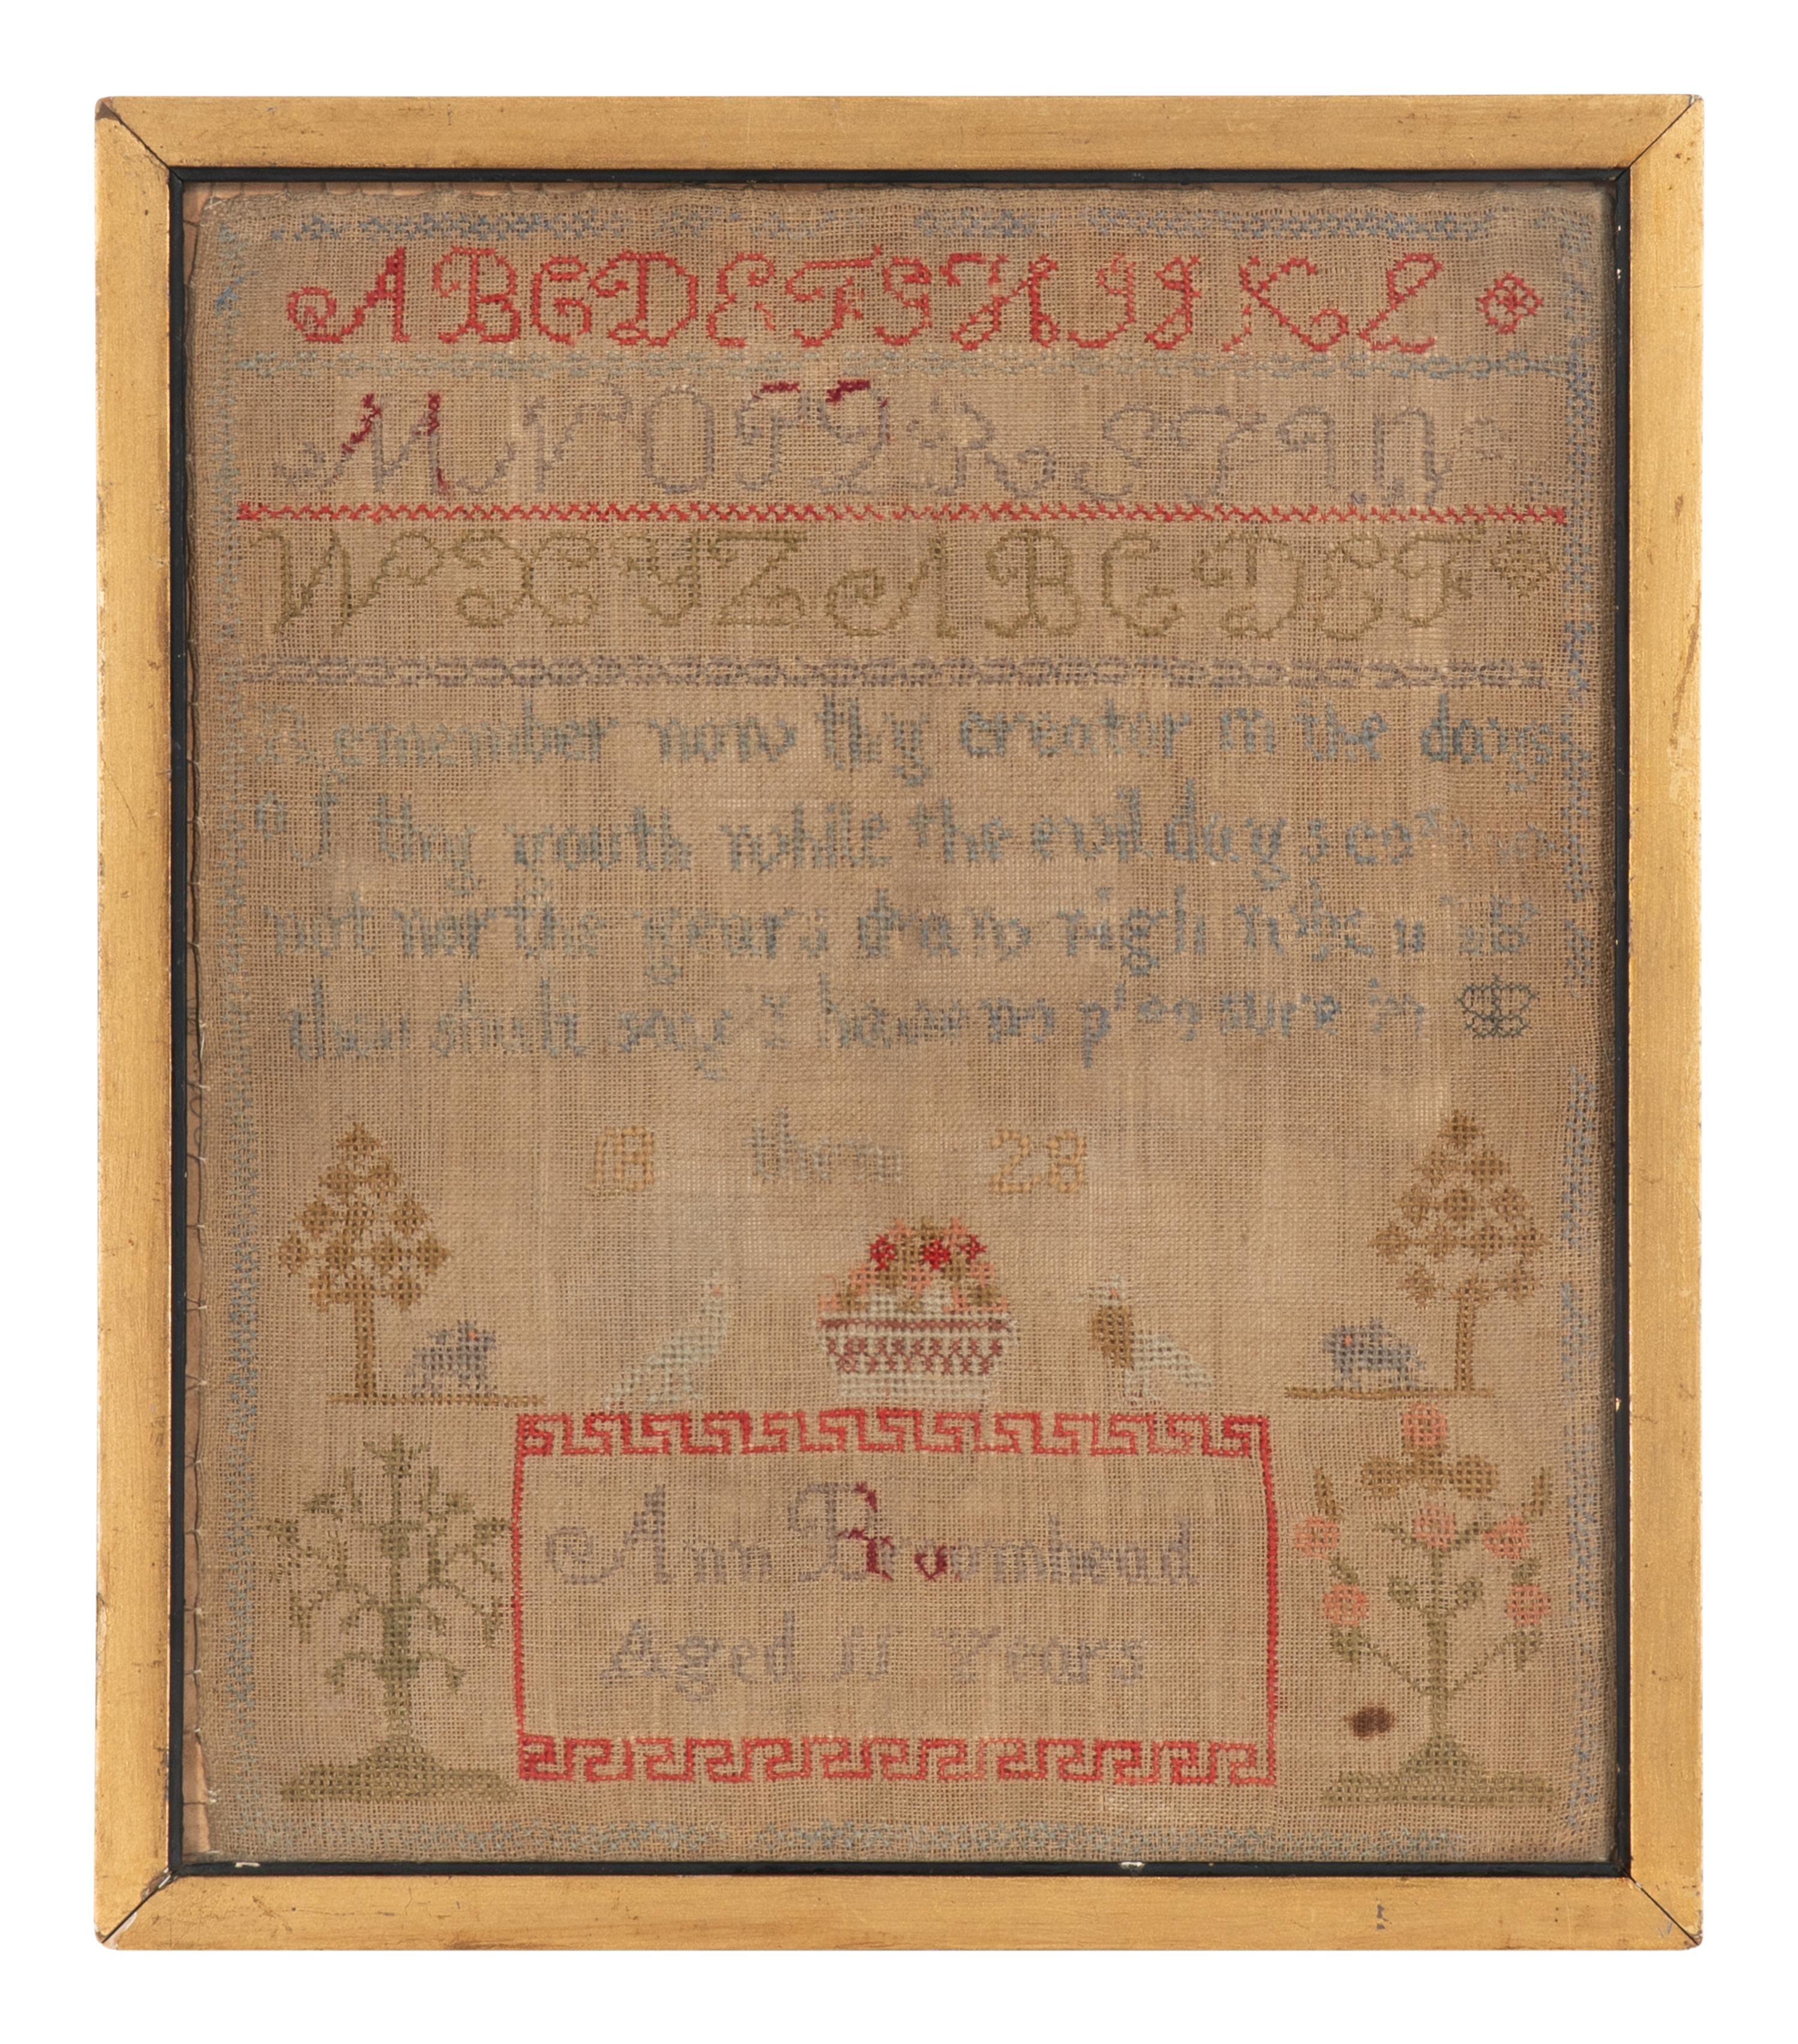 A B C D E F G H I J K L
M N O P Q R S T U
W X Y Z A B C D E F
Remember now thy creator in the days
of thy youth while the evil days come
not nor the years draw nigh when
thou shalt say I have no pleasure in
18 them 28
Ann Broomhead
Aged 11 Years